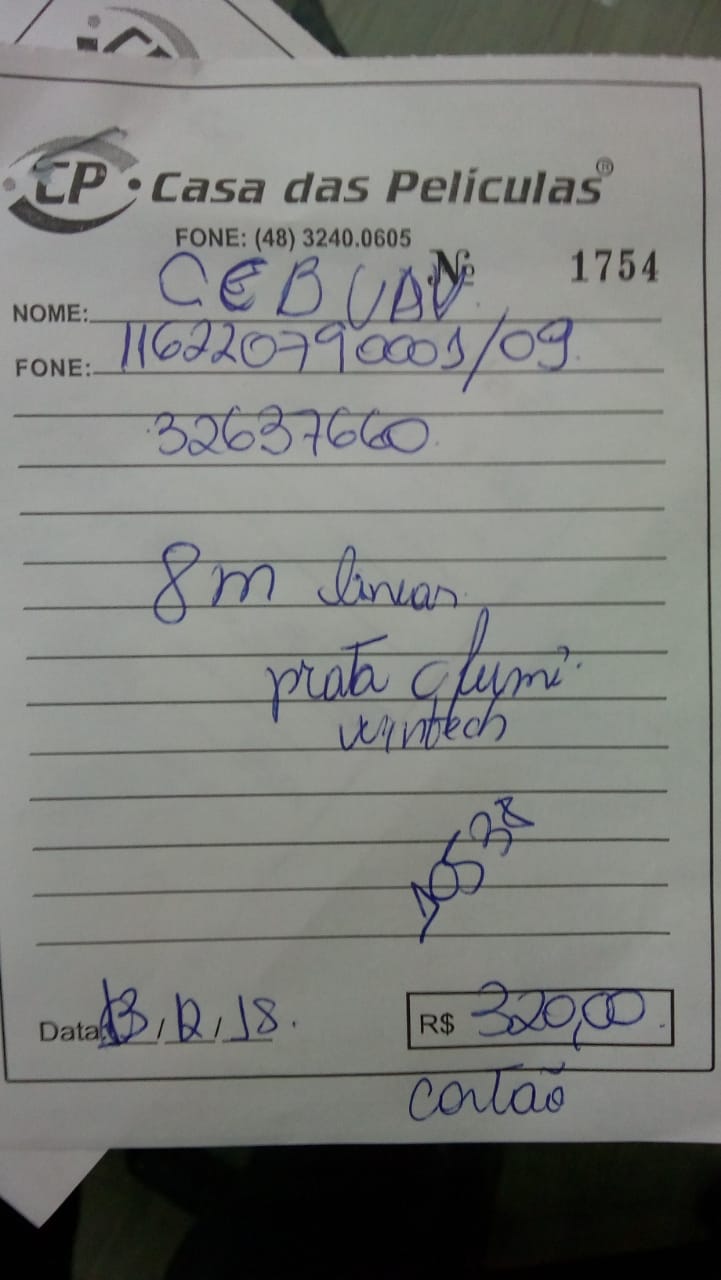 CP • Casa das Películas®
FONE: (48) 3240.0605
Nº 1754
NOME: CEB UAV
FONE: 116220790001/09
32637660
8m linear
prata
wintech
10538
Data 13/12/18.
R$ 320,00
cartão